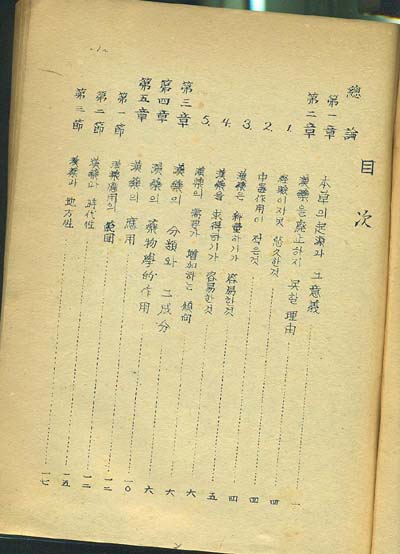 目次
總論
第一章 本草의 起源과 그 意義 一
第二章 漢藥을 廢止하지 못할 理由
1. 經驗이 자못 悠久한것 四
2. 中毒作用이 적은것 四
3. 漢藥은 秤量하기가 容易한것 四
4. 漢藥을 求得하기가 容易한것 五
5. 漢藥의 需要가 增加하는 傾向 六
第三章 漢藥의 分類와 그 成分 六
第四章 漢藥의 藥物學的作用 六
第五章 漢藥의 應用 一〇
第一節 漢藥應用의 範囲 一二
第二節 漢藥과 時代性 一二
第三節 漢藥과 地方性 一五
一七